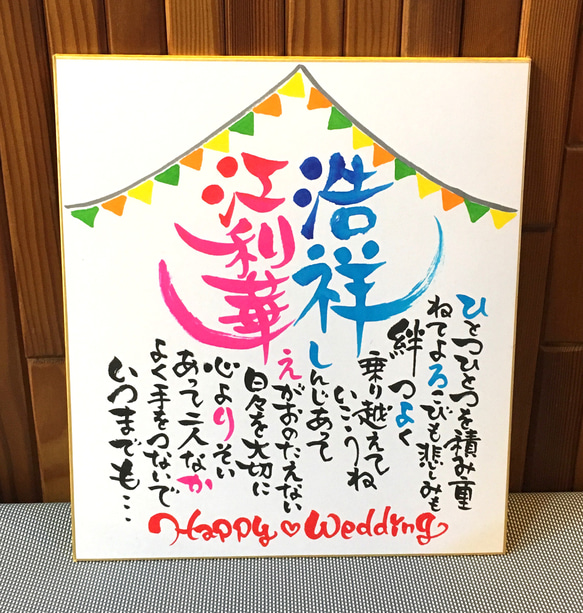 浩祥
江利華
ひとつひとつを積み重
ねてよろこびも悲しみも
絆つよく
乗り越えて
いこうね
しんじあって
えがおのたえない
日々を大切に
心よりそい
あって二人なか
よく手をつないで
いつまでも…
Happy♡Wedding